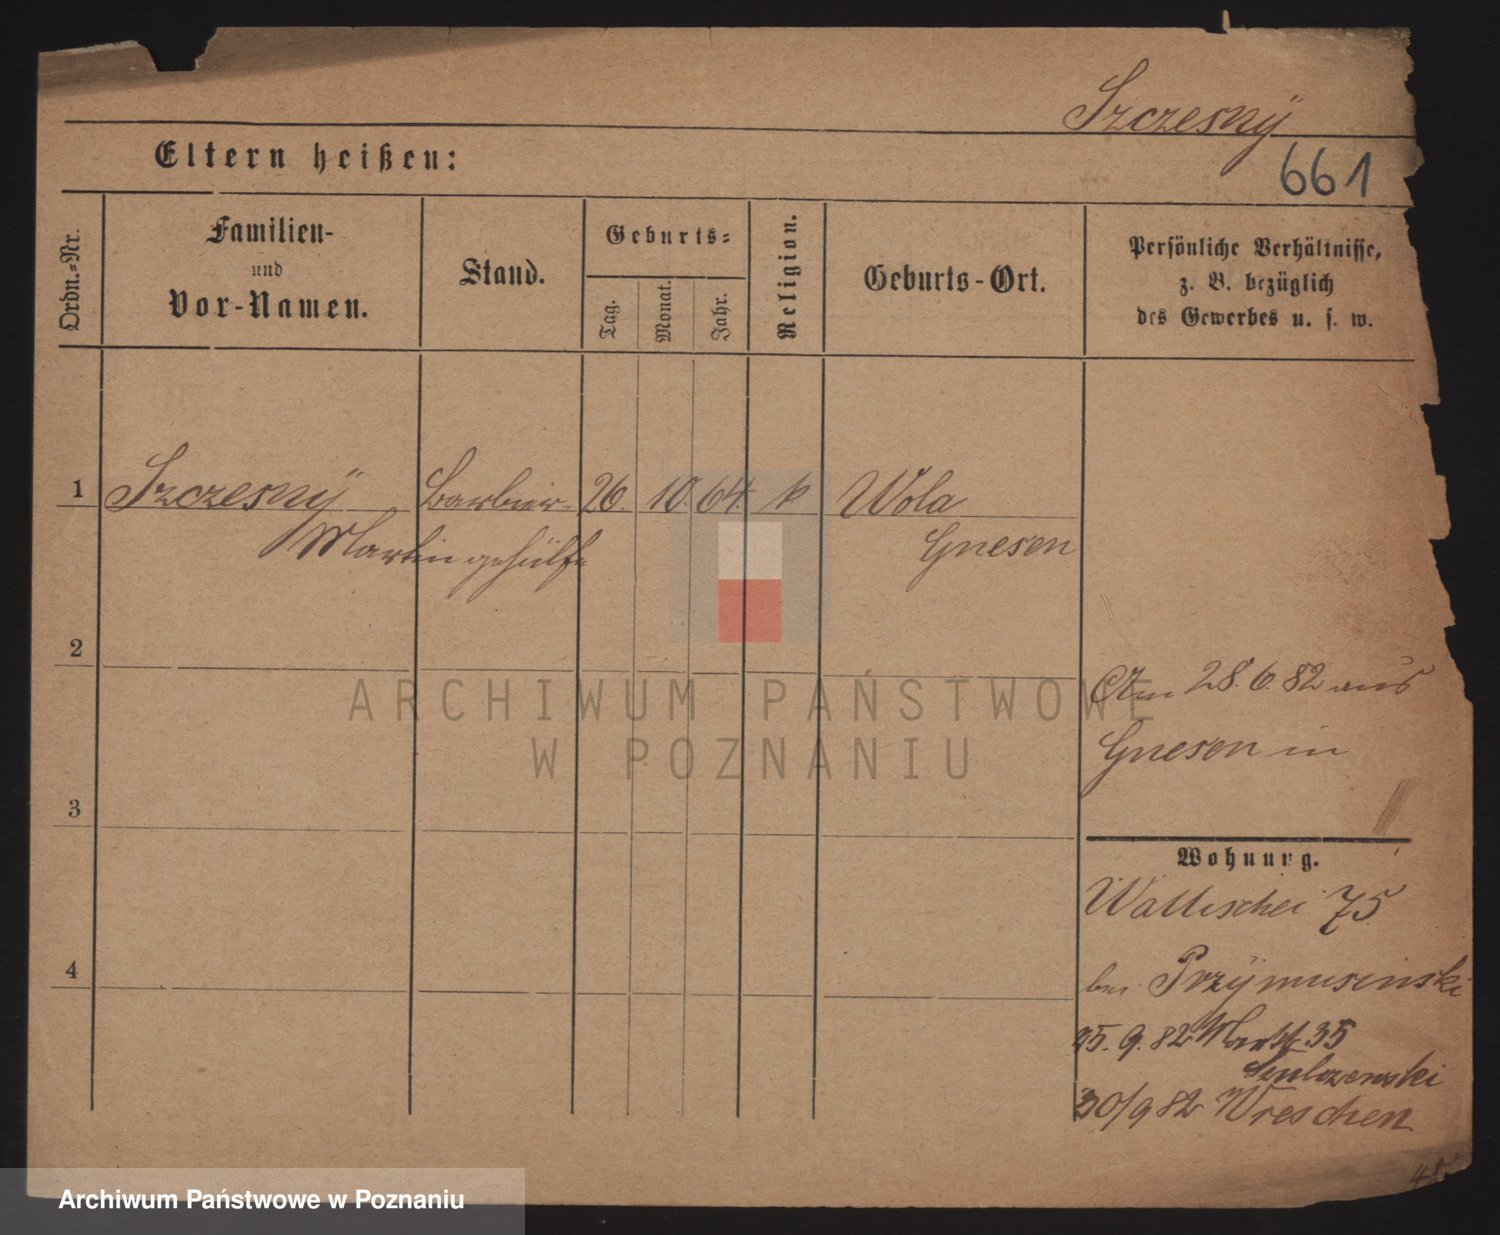 Szczesnÿ
661
Eltern heißen:
Ordn.-Nr.
Familien-
und
Vor-Namen.
Stand.
Geburts-
Tag.
Monat.
Jahr.
Religion.
Geburts-Ort.
Persönliche Verhältnisse,
z. B. bezüglich
des Gewerbes u. s. w.
1 Szczesnÿ Barbier- 26. 10. 64. k Wola
Martin gehülfe Gnesen
2
Am 28.6.82 aus
Gnesen in
3
Wohnung.
Wallischei 75
4
bei Przÿmusinski
25. 9. 82 Markt 35
30/9 82 Wreschen
48
ARCHIWUM PAŃSTWOWE
W POZNANIU
Archiwum Państwowe w Poznaniu